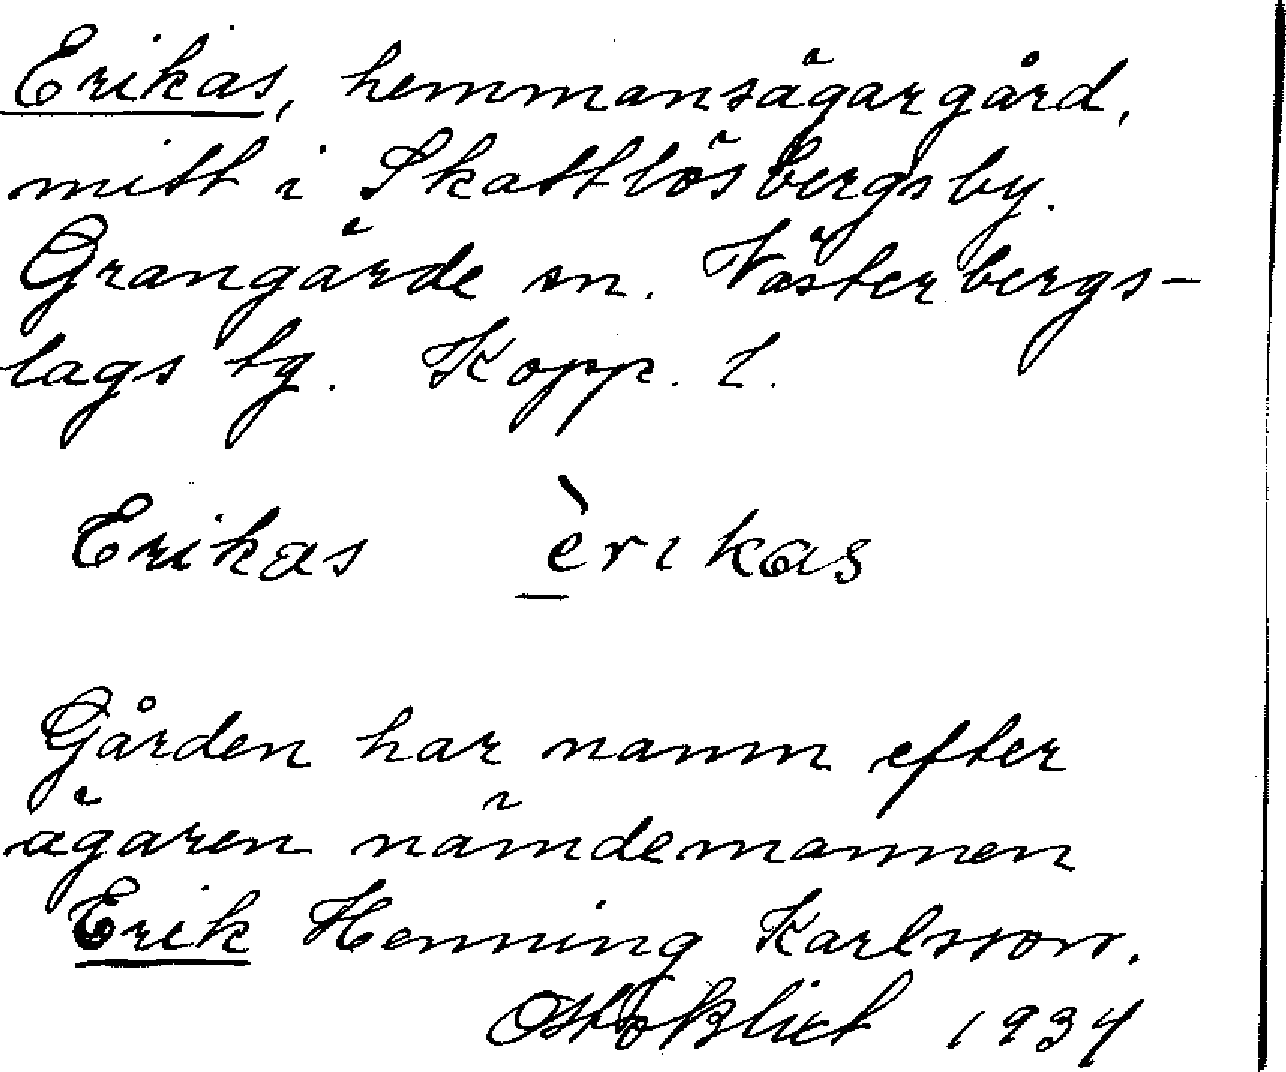 Erikas, hemmansägargård,
mitt i Skattlösbergsby.
Grangärde sn. Västerbergs-
lags tg. Kopp. l.
Erikas èrikas
Gården har namn efter
ägaren nämdemannen
Erik Henning Karlsson.
Otto Blixt 1934